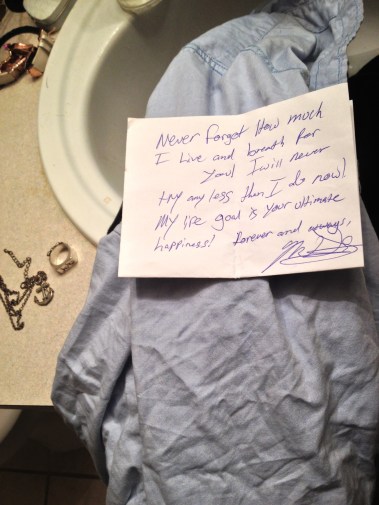 Never forget How much
I Live and breath for
you! I will never
try any less than I do now!
My life goal is your ultimate
happiness! forever and always,